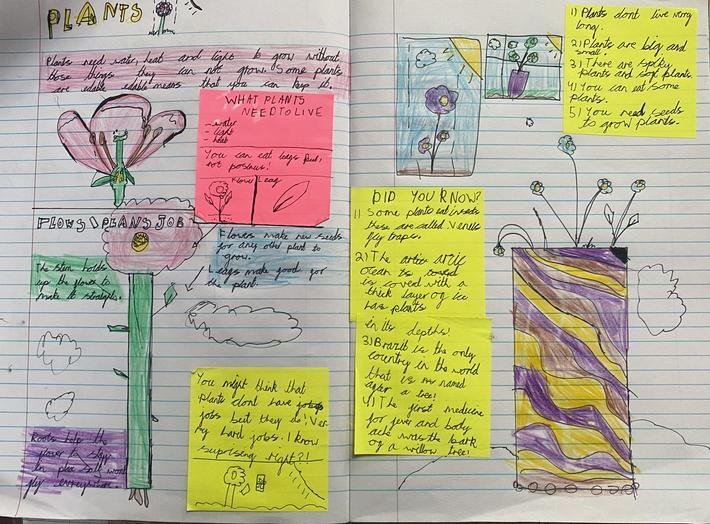 PLANTS
Plants need water, heat and light to grow without
those things they can not grow. Some plants
are edable edable means that you can it.
WHAT PLANTS
NEED TO LIVE
- water
- light
- heat
You can eat leafs but,
not
Flower Leaf
FLOWS / PLANS JOB
Flowers make new seeds
for any other plant to
grow.
Leafs make good for
the plant.
The stem holds
up the flower to
make it straight.
You might think that
plants dont have
jobs but they do! Ver-
ry hard jobs. I know
suprising right?!
Roots help the
flower to stay
in
fly everywhere
1) Plants dont live very
long.
2) Plants are big and
small.
3) There are spiky
plants and soft plants
4) You can eat some
plants.
5) You need seeds
to grow plants.
DID YOU KNOW?
1) Some plants eat insects
these are called Venus
fly traps.
2) The artic artic
ocean is coved
is coved with a
thick layer of ice
has plants
in its depths!
3) Brazil is the only
country in the world
that is named
after a tree!
4) The first medicine
for fever and body
ache was the bark
of a willow tree!